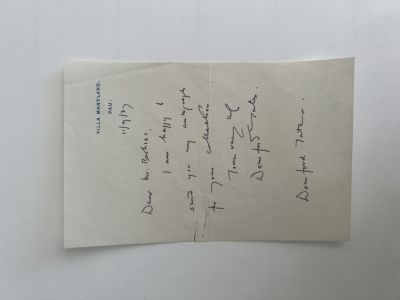 VILLA MARYLAND,
PAU.
11/9/37
Dear Mr.
I am happy to
send you my autograph
for your collection
Yours very
Dornford Yates.
Dornford Yates.